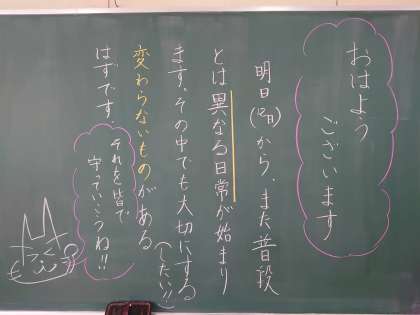 おはよう
ございます
明日(12日)から、また普段
とは異なる日常が始まり
ます。その中でも大切にする
(したい!!)
変わらないものがある
はずです。
それを皆で
守っていこうね!!